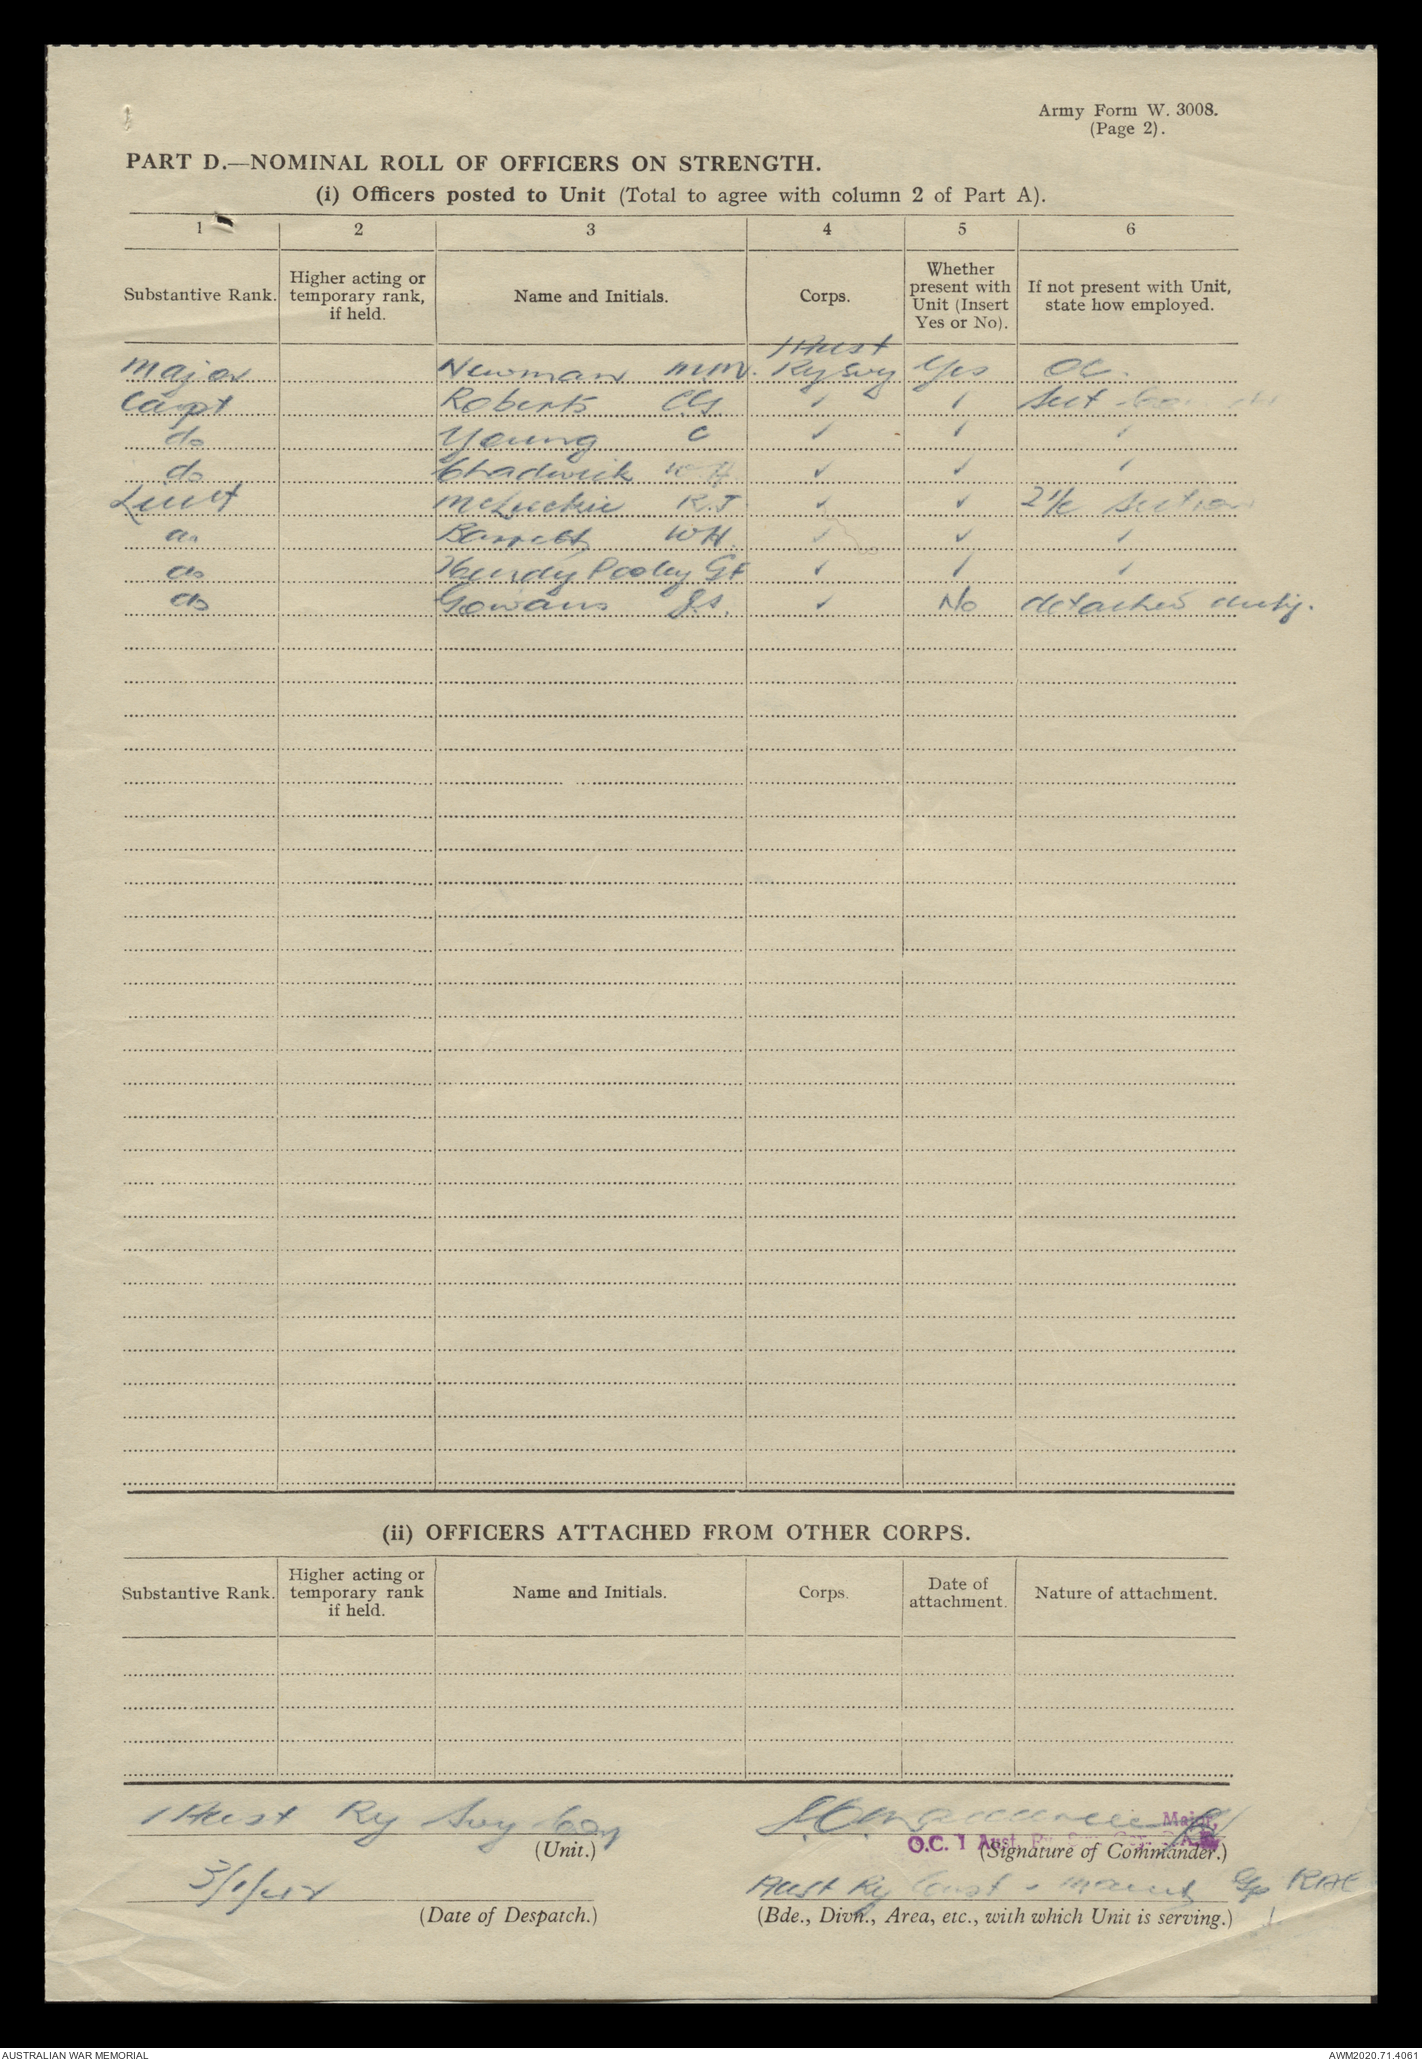 Army Form W. 3008.
(Page 2).
PART D.—NOMINAL ROLL OF OFFICERS ON STRENGTH.
(i) Officers posted to Unit (Total to agree with column 2 of Part A).
1 2 3 4 5 6
Substantive Rank. Higher acting or temporary rank, if held. Name and Initials. Corps. Whether present with Unit (Insert Yes or No). If not present with Unit, state how employed.
1 Aust
Major Newman M.M. Ry Svy Yes OC.
Capt Roberts CG ✓ ✓ Sect
do Young C ✓ ✓ ✓
do Chadwick W.H. ✓ ✓ ✓
Lieut McLuckie R.J. ✓ ✓ 2i/c Section
do Barrett WH. ✓ ✓ ✓
do Pooley ✓ ✓ ✓
do Gowans J.S. ✓ No detached duty.
(ii) OFFICERS ATTACHED FROM OTHER CORPS.
Substantive Rank. Higher acting or temporary rank if held. Name and Initials. Corps. Date of attachment. Nature of attachment.
1 Aust Ry Svy Coy
(Unit.)
Major,
O.C. 1 Aust. Ry. Svy. Coy.
(Signature of Commander.)
3/1/42
(Date of Despatch.)
Aust Ry Const & Maint Gp RAE
(Bde., Divn., Area, etc., with which Unit is serving.)
AUSTRALIAN WAR MEMORIAL
AWM2020.71.4061